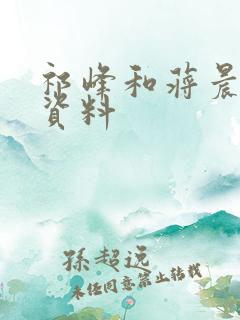 祁峰和蒋晨
資料
孫超远
未经同意禁止转载